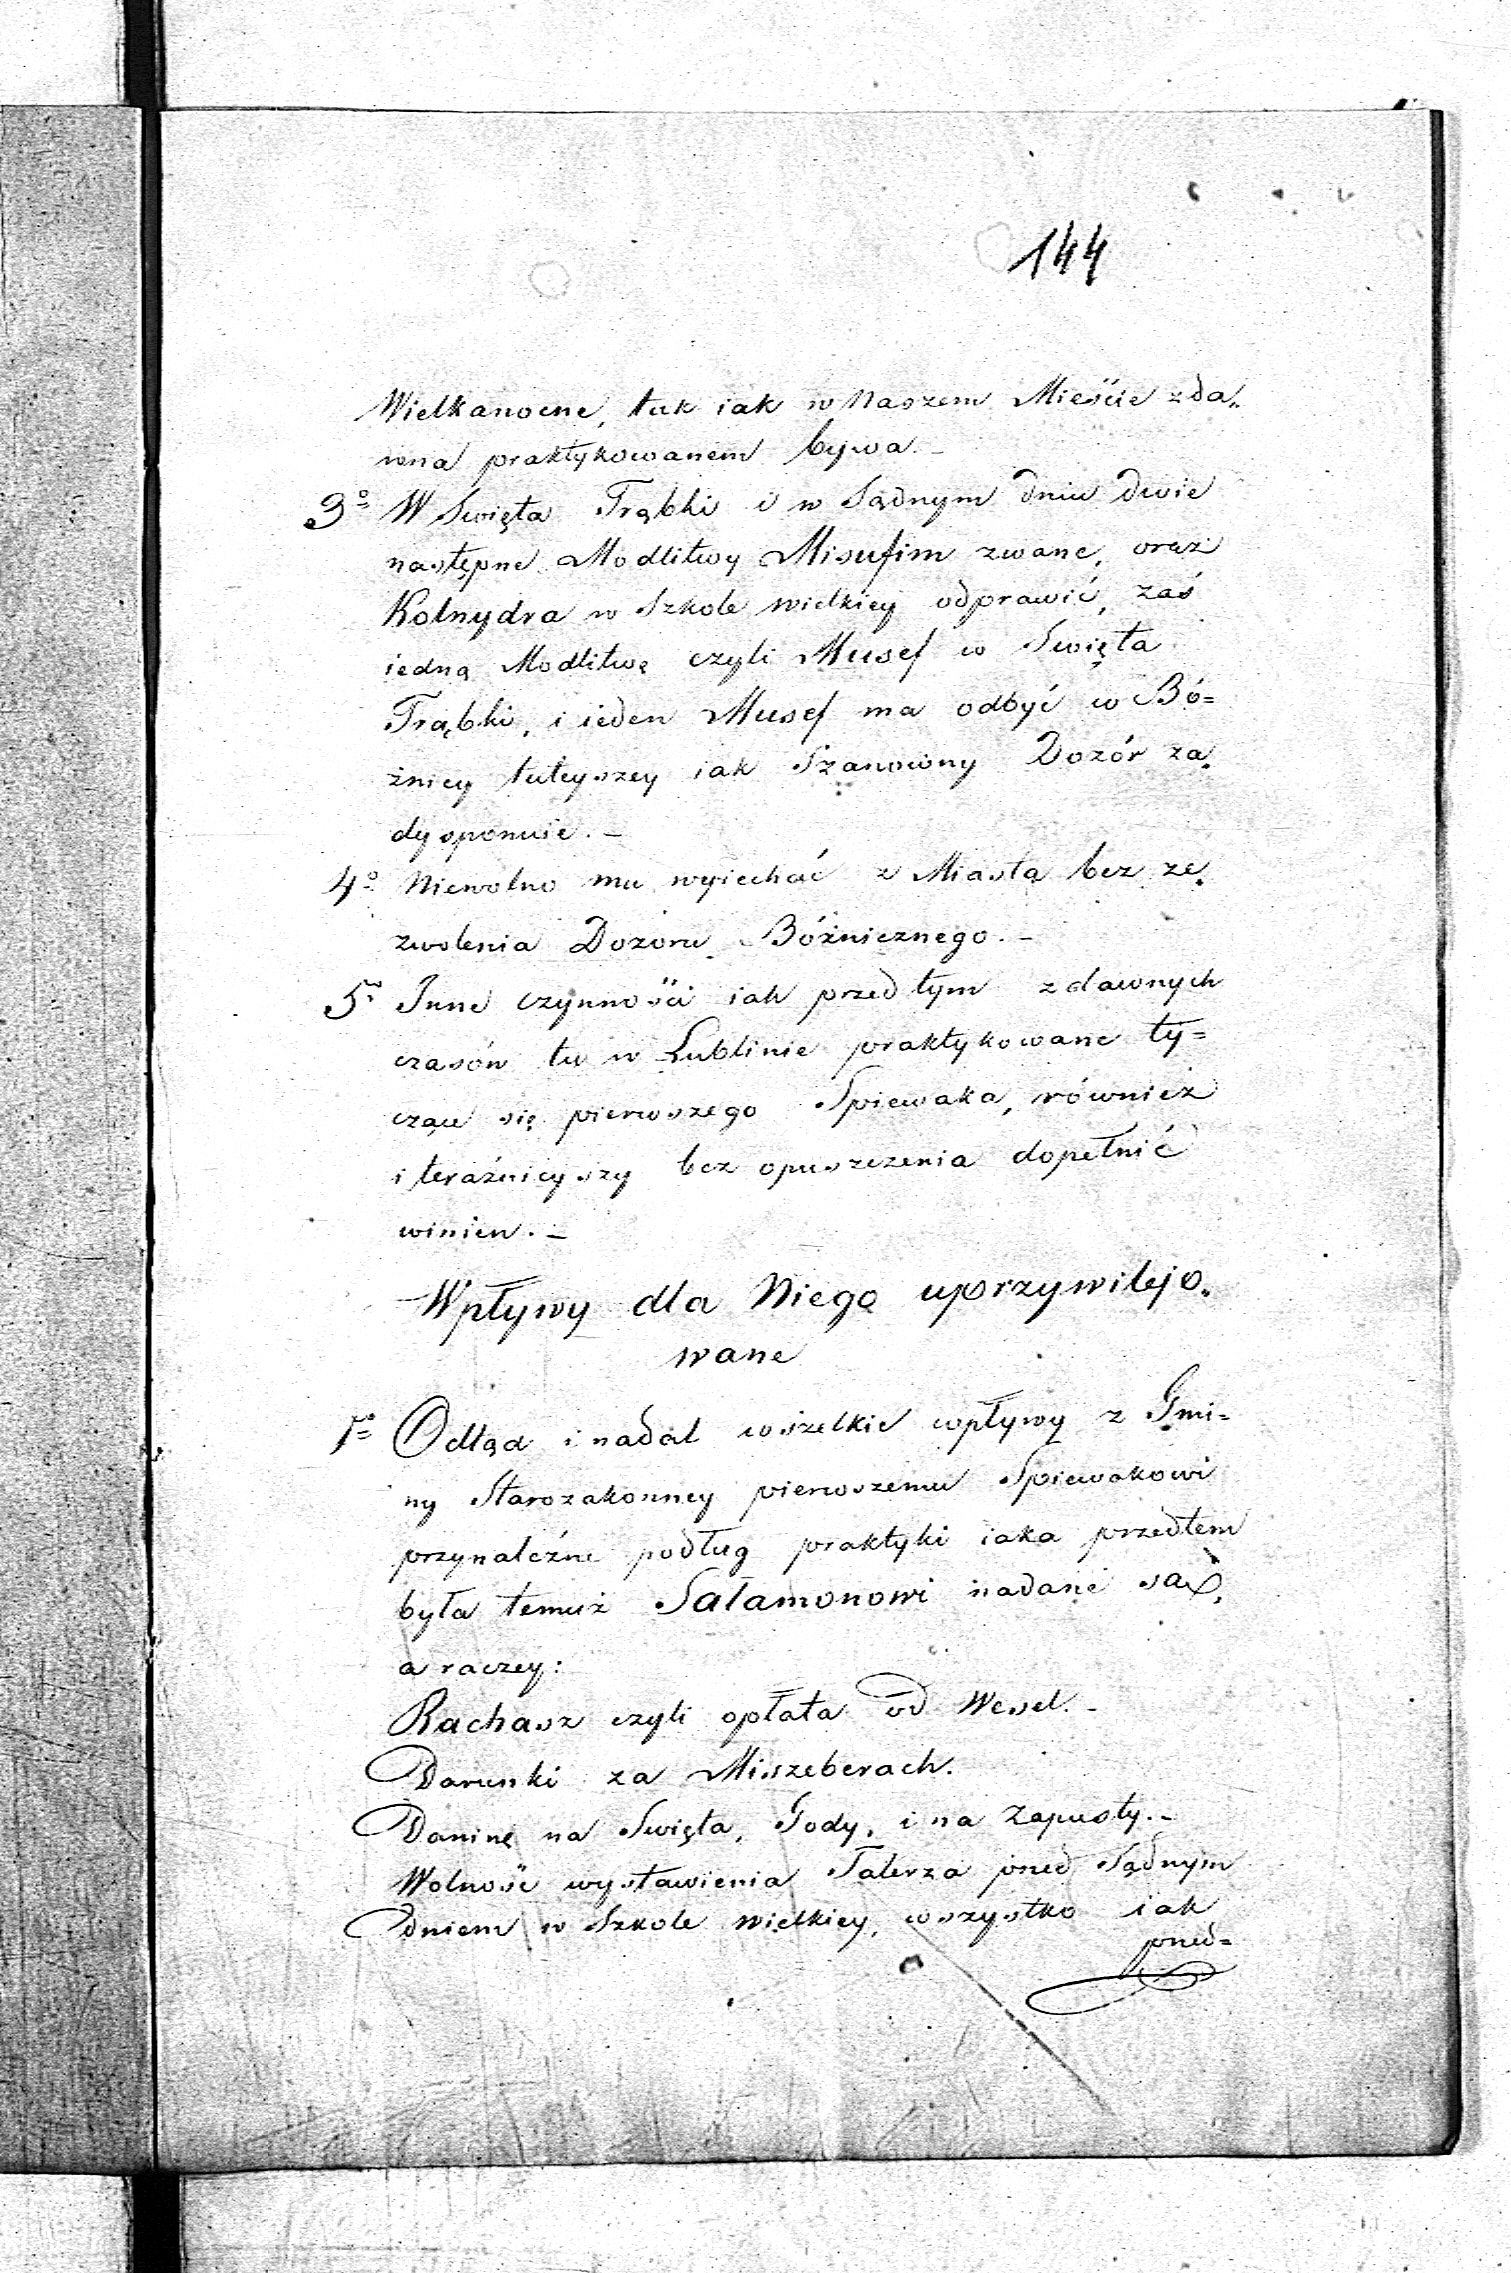 144
Wielkanocne, tak iak w Naszem Mieście zda„
wna praktykowanem bywa. –
3o W Swięta Trąbki i w Sądnym dniu dwie
następne Modlitwy Misufim zwane, oraz
Kolnydra w Szkole wielkiey odprawić, zaś
iedną Modlitwę czyli Musef w Swięta
Trąbki, i ieden Musef ma odbyć w Bó=
żnicy tuteyszey iak Szanowny Dozór za„
dysponuie. –
4o Niewolno mu wyiechać z Miasta bez ze„
zwolenia Dozoru Bóżnicznego. –
5o Inne czynności iak przed tym z dawnych
czasów tu w Lublinie praktykowane ty=
czące się pierwszego Spiewaka, również
i teraźnieyszy bez opuszczenia dopełnić
winien. –
Wpływy dla Niego uprzywilejo„
wane
1o Odtąd i nadal wszelkie wpływy z Gmi=
ny Starozakonney pierwszemu Spiewakowi
przynależne podług praktyki iaka przedtem
była temuż Salamonowi nadane są,
a raczey:
Rachasz czyli opłata od Wesel. –
Darunki za Miszeberach.
Daninę na Swięta, Gody, i na Zapusty. –
Wolność wystawienia Talerza przed Sądnym
dniem w Szkole wielkiey, wszystko iak
przed=